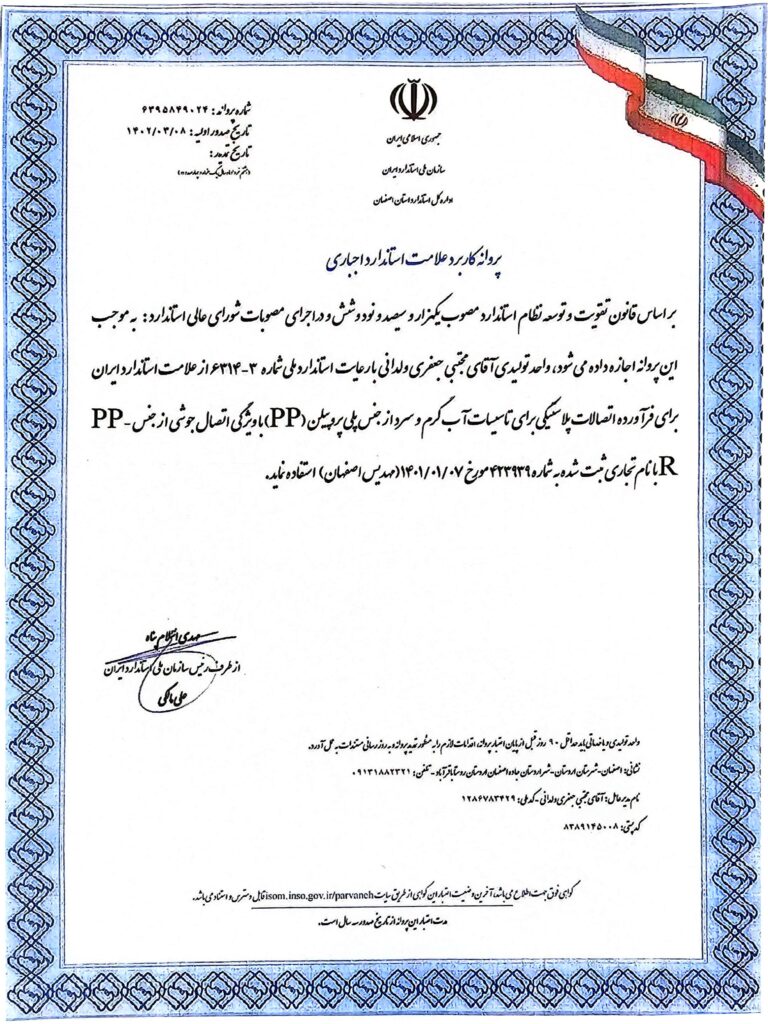 شماره پروانه: ۶۳۹۵۸۴۹۰۲۴
تاریخ صدور اولیه: ۱۴۰۲/۰۳/۰۸
تاریخ تمدید:
جمهوری اسلامی ایران
سازمان ملی استاندارد ایران
اداره کل استاندارد استان اصفهان
پروانه کاربرد علامت استاندارد اجباری
بر اساس قانون تقویت و توسعه نظام استاندارد مصوب یکهزار و سیصد و نود و شش و در اجرای مصوبات شورای عالی استاندارد: به موجب
این پروانه اجازه داده می شود، واحد تولیدی آقای مجتبی جعفری ولدانی با رعایت استاندارد ملی شماره ۳-۶۳۱۴ از علامت استاندارد ایران
برای فرآورده اتصالات پلاستیکی برای تاسیسات آب گرم و سرد از جنس پلی پروپیلن (PP) با ویژگی اتصال جوشی از جنس PP-
R با نام تجاری ثبت شده به شماره ۴۲۳۹۳۹ مورخ ۱۴۰۱/۰۱/۰۷ (مهدیس اصفهان) استفاده نماید.
مهدی
از طرف رئیس سازمان ملی استاندارد ایران
علی مالکی
واحد تولیدی و یا خدماتی باید حداقل ۹۰ روز قبل از پایان اعتبار پروانه، اقدامات لازم را به منظور تمدید پروانه و به روز رسانی مستندات به عمل آورد.
نشانی: اصفهان-شهرستان اردستان-شهر اردستان جاده اصفهان اردستان روستا باقرآباد-تلفن: ۰۹۱۳۱۸۸۲۳۲۱
نام مدیرعامل: آقای مجتبی جعفری ولدانی-کد ملی: ۱۲۸۶۷۸۳۴۲۹
کد پستی: ۸۳۸۹۱۴۵۰۰۸
گواهی فوق جهت اطلاع می باشد، آخرین وضعیت اعتبار این گواهی از طریق سایت isom.inso.gov.ir/parvaneh قابل دسترس و استناد می باشد.
مدت اعتبار این پروانه از تاریخ صدور سه سال است.